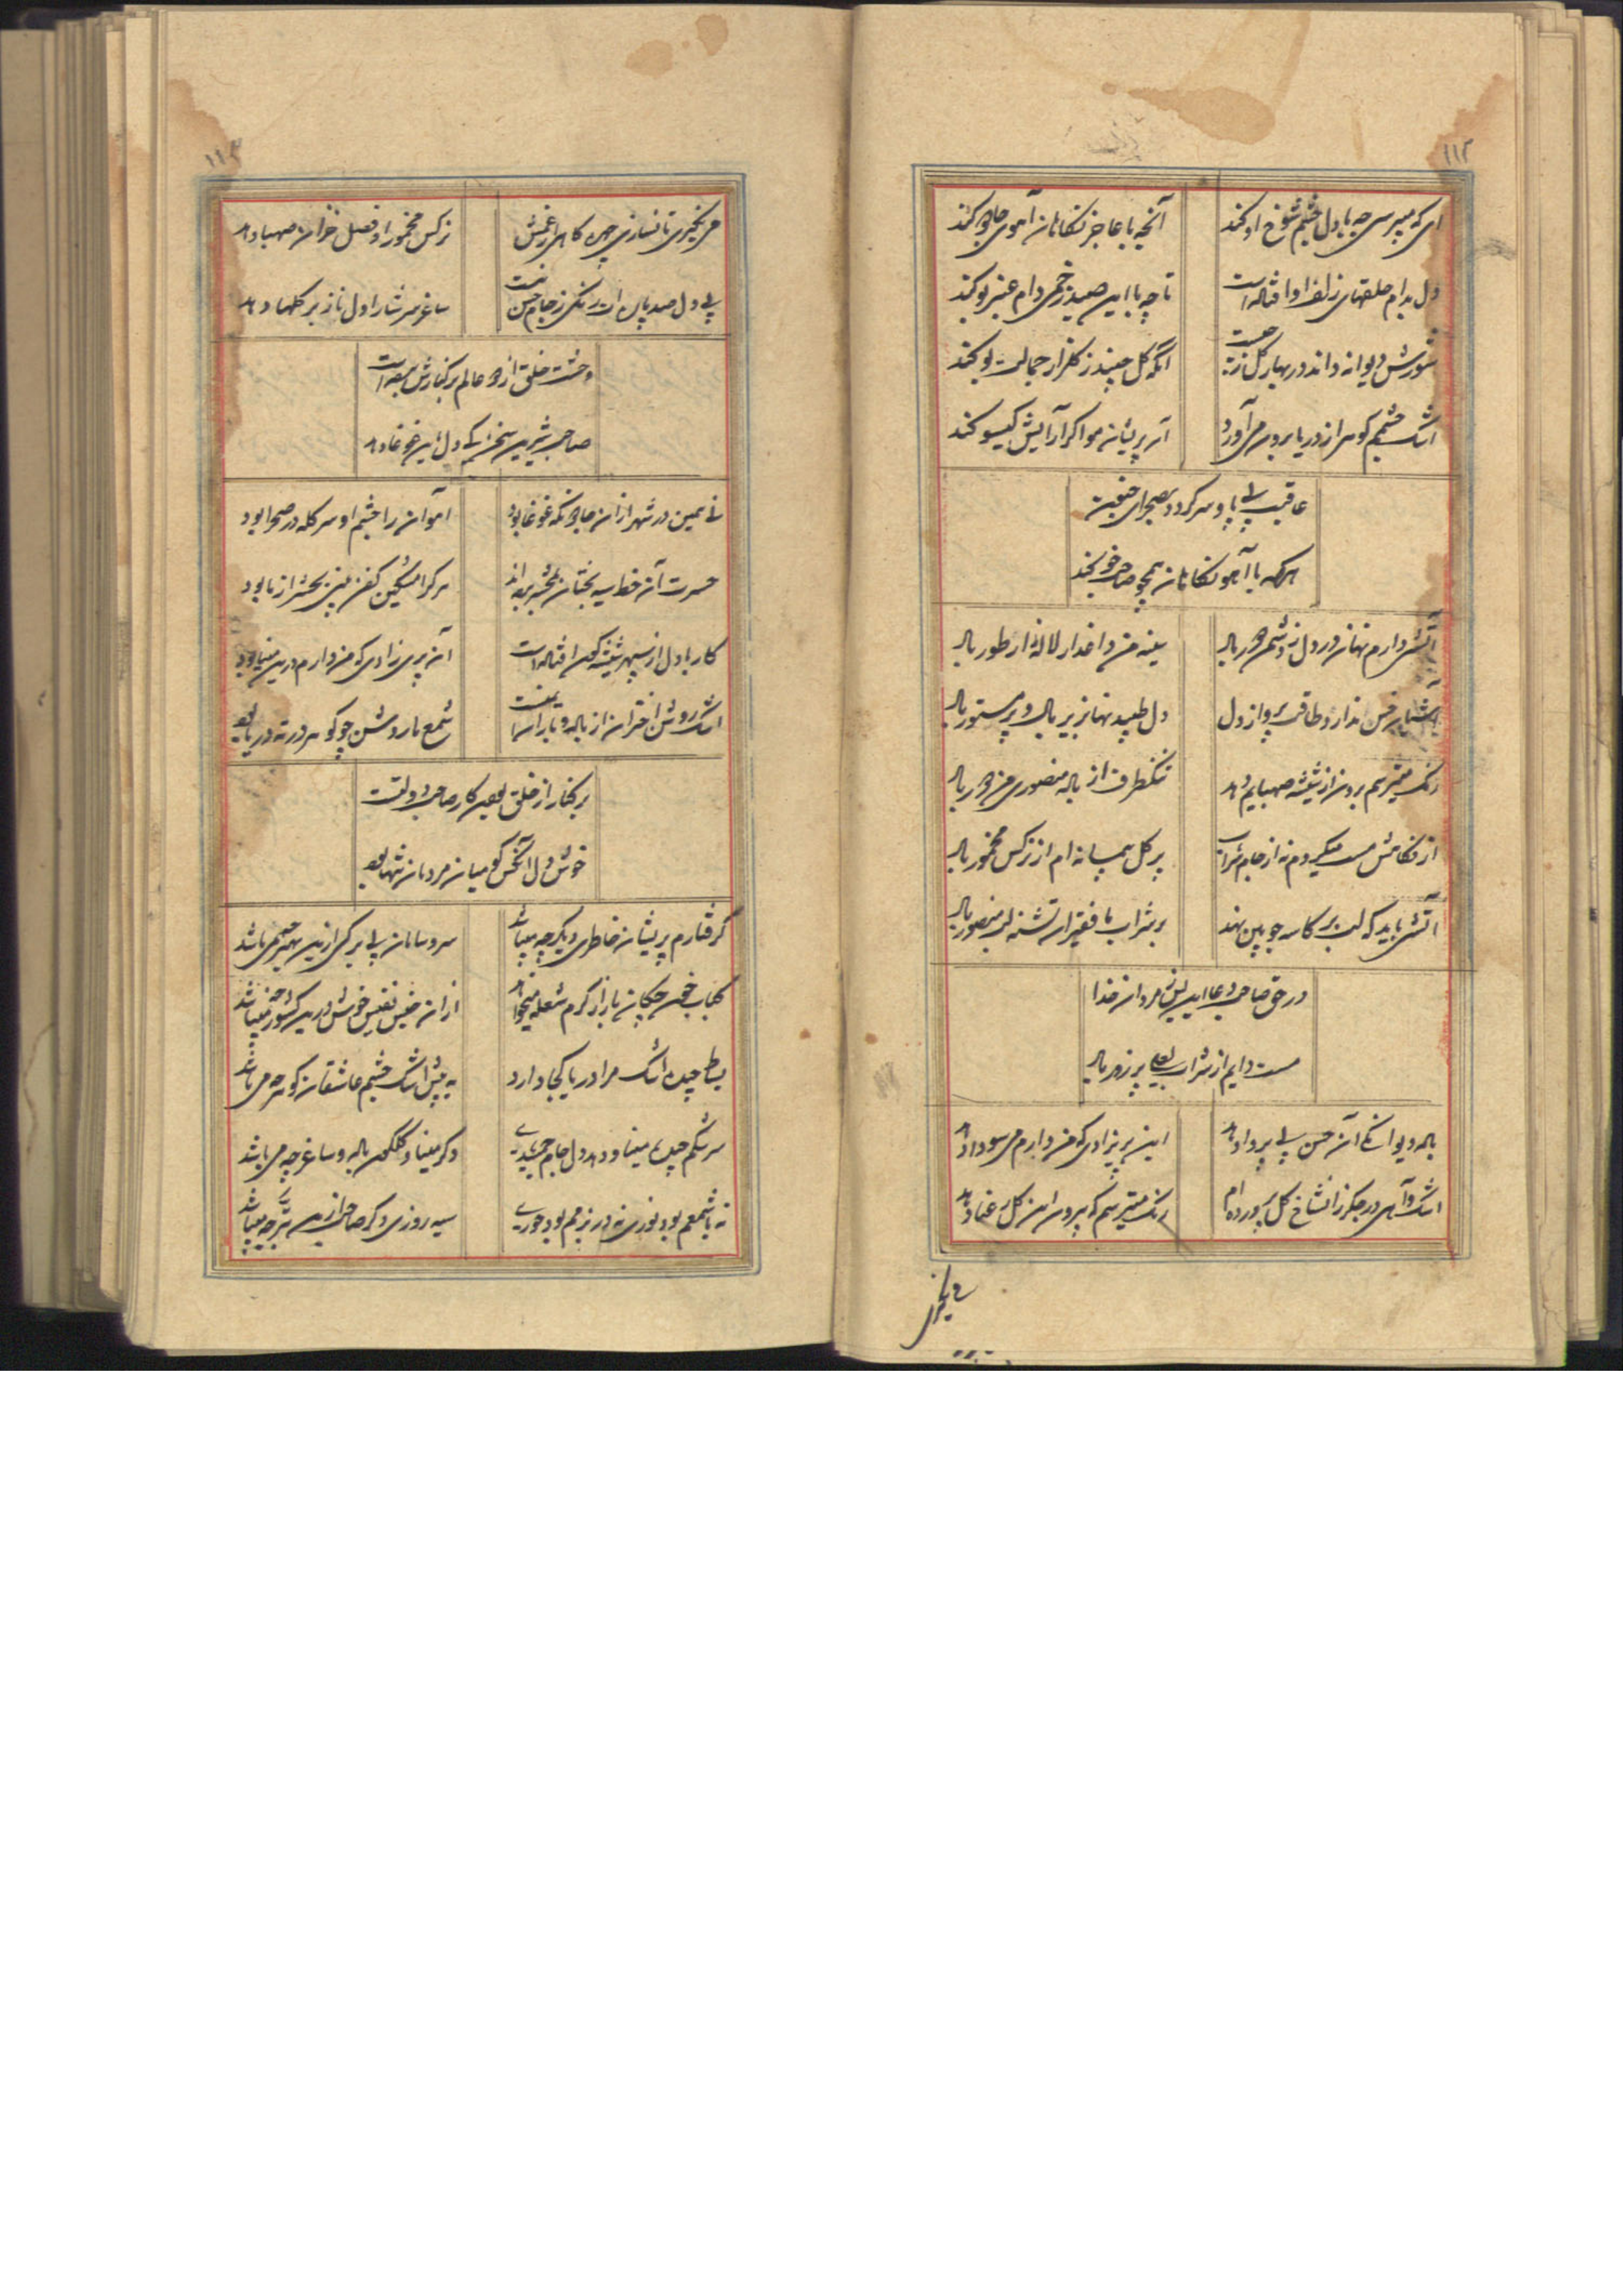 ۱۱۲
ای که میپرسی چه با دل چشم شوخ او کند
آنچه با عاجز نگاهان آهوی جادو کند
دل بدام حلقهای زلف او افتاده است
تا چه با این صید زخمی دام عنبر بو کند
شورش دیوانه داند در بهار گل ز چیست
آنکه گل چیند ز گلزار جمالت بو کند
اشک چشمم گوهر از دریا برون می آورد
آن پریشان مو اگر آرایش گیسو کند
عاقبت بی پا و سر گردد بصحرای جنون
هر که با آهو نگاهان همچو صاحب خو کند
آتشی دارم نهان در دل ز چشم
سینه من داغدار لاله از طور
ندارد طاقت پرواز دل
دل طپید نهان زیر بال و پر مستور
رنگ میترسم برون از شیشه صهبایم دهد
تنکظرف از باده منصوری من
از نگاهش مست میگردم نه از جام شراب
پر گل پیمانه ام از نرگس مخمور
آتشی باید که لب بر کاسه چوبین نهد
بر شراب ما فقیران تشنه لب منصور
در حق صاحب دعا این بس مردان خدا
مست دایم از شراب لعل پر زور
باده دیوانگی آن حسن بی پروا دهد
این پریزادی که من دارم می سودا دهد
اشک و آهی در جگر زان شاخ گل پرورده ام
رنگ میترسم که بیرون این گل رعنا دهد
۱۱۳
می نگیری تا نسازی چهره کاهی از غمش
نرگس مخمور او فصل خزان صهبا دهد
بی دل صد پاره رنگی ز جام حسن نیست
ساغر سرشار اول ناز بر گلها دهد
وحشت خلق از دو عالم بر کنارش برده است
صاحب شیرین سخن کی دل باین غوغا دهد
نی همین در شهر از آن جادو نگه غوغا بود
آهوان را چشم او سر گله در صحرا بود
حسرت آن خط سیه بختان بمحشر برده اند
هر کرا مشکین کفن بینی بحشر از ما بود
کار با دل از سپهر شیشه گون افتاده است
آن پریزادی که من دارم درین مینا بود
اشک روشن اختران از باده ناب است
شمع ما روشن چو گوهر در ته دریا بود
بر کنار از خلق بودن کار صاحب دولتست
خوش دل آنکس کو میان مردمان تنها بود
گرفتارم پریشان خاطری دیگر چه میباشد
سر و سامان بی برگی ازین بهتر چه می باشد
کباب خون چکان بازار گرم شعله میخواهد
ازان جنس نفیس خوش درین کشور چه میباشد
بساط چیده اشک مرا دریا کجا دارد
به پیش اشک چشم عاشقان گوهر چه می باشد
سرشکم چیده مینا و دهد دل جام جمشیدی
دگر مینا و گلگون باده و ساغر چه می باشد
نه با شمعم بود نوری نه در بزمم بود حوری
سیه روزی دگر صاحب ازین بدتر چه میباشد